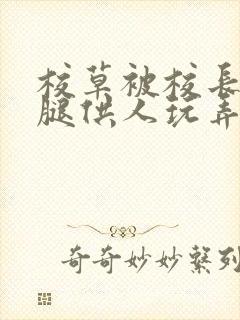 校草被校長
腿供人玩弄
奇奇妙妙系列